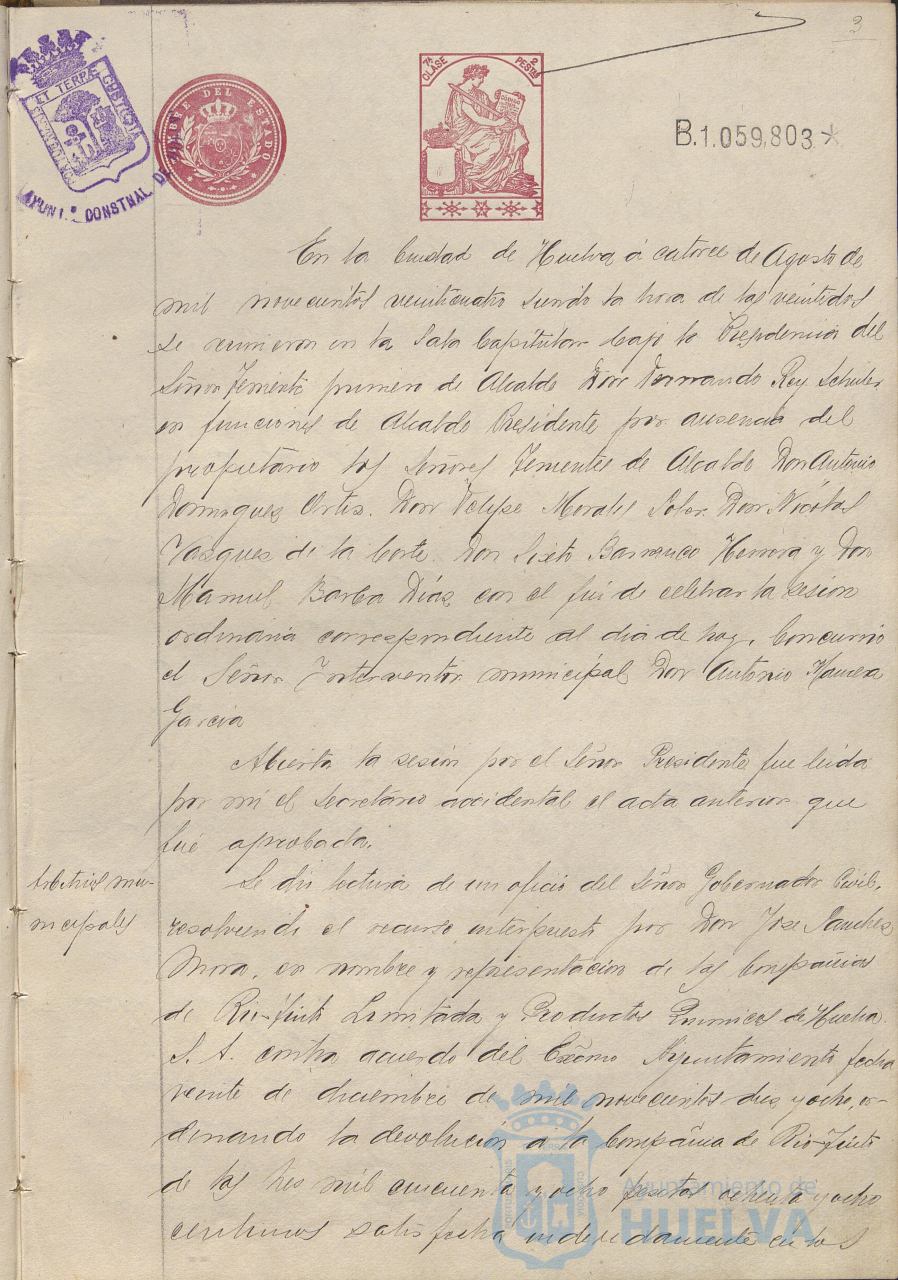 3
ET TERRÆ CUSTODIA
AYUNT.º CONSTNAL DE
TIMBRE DEL ESTADO
7ª CLASE
2 PESETAS
B.1.059,803*
En la Ciudad de Huelva á catorce de Agosto de
mil novecientos veinticuatro siendo la hora de las veintidos
se reunieron en la Sala Capitular bajo la Presidencia del
Señor Teniente primero de Alcalde Don Fernando Rey Schuler
en funciones de Alcalde Presidente por ausencia del
propietario los señores Tenientes de Alcalde Don Antonio
Dominguez Ortiz. Don Felipe Morales Soler. Don Nicolas
Vasques de la Corte. Don Sixto Barranco Herrera y Don
Manuel Barba Diaz con el fin de celebrar la sesion
ordinaria correspondiente al dia de hoy. Concurrió
el Señor Interventor municipal Don Antonio
Garcia
Abierta la sesion por el Señor Presidente fue leida
por mi el Secretario accidental el acta anterior que
fué aprobada.
Arbitrios mu-
nicipales
Se dio lectura de un oficio del Señor Gobernador Civil,
resolviendo el recurso interpuesto por Don Jose Sanches
Mora, en nombre y representacion de las Compañias
de Rio-Tinto Limitada y Productos Quimicos de Huelva
S. A. contra acuerdo del Excmo Ayuntamiento fecha
veinte de diciembre de mil novecientos dies y ocho, or-
denando la devolucion a la Compañia de Rio-Tinto
de las tres mil cincuenta y ocho pesetas ochenta y ocho
centimos satisfecha indevidamente en los
Ayuntamiento de
HUELVA